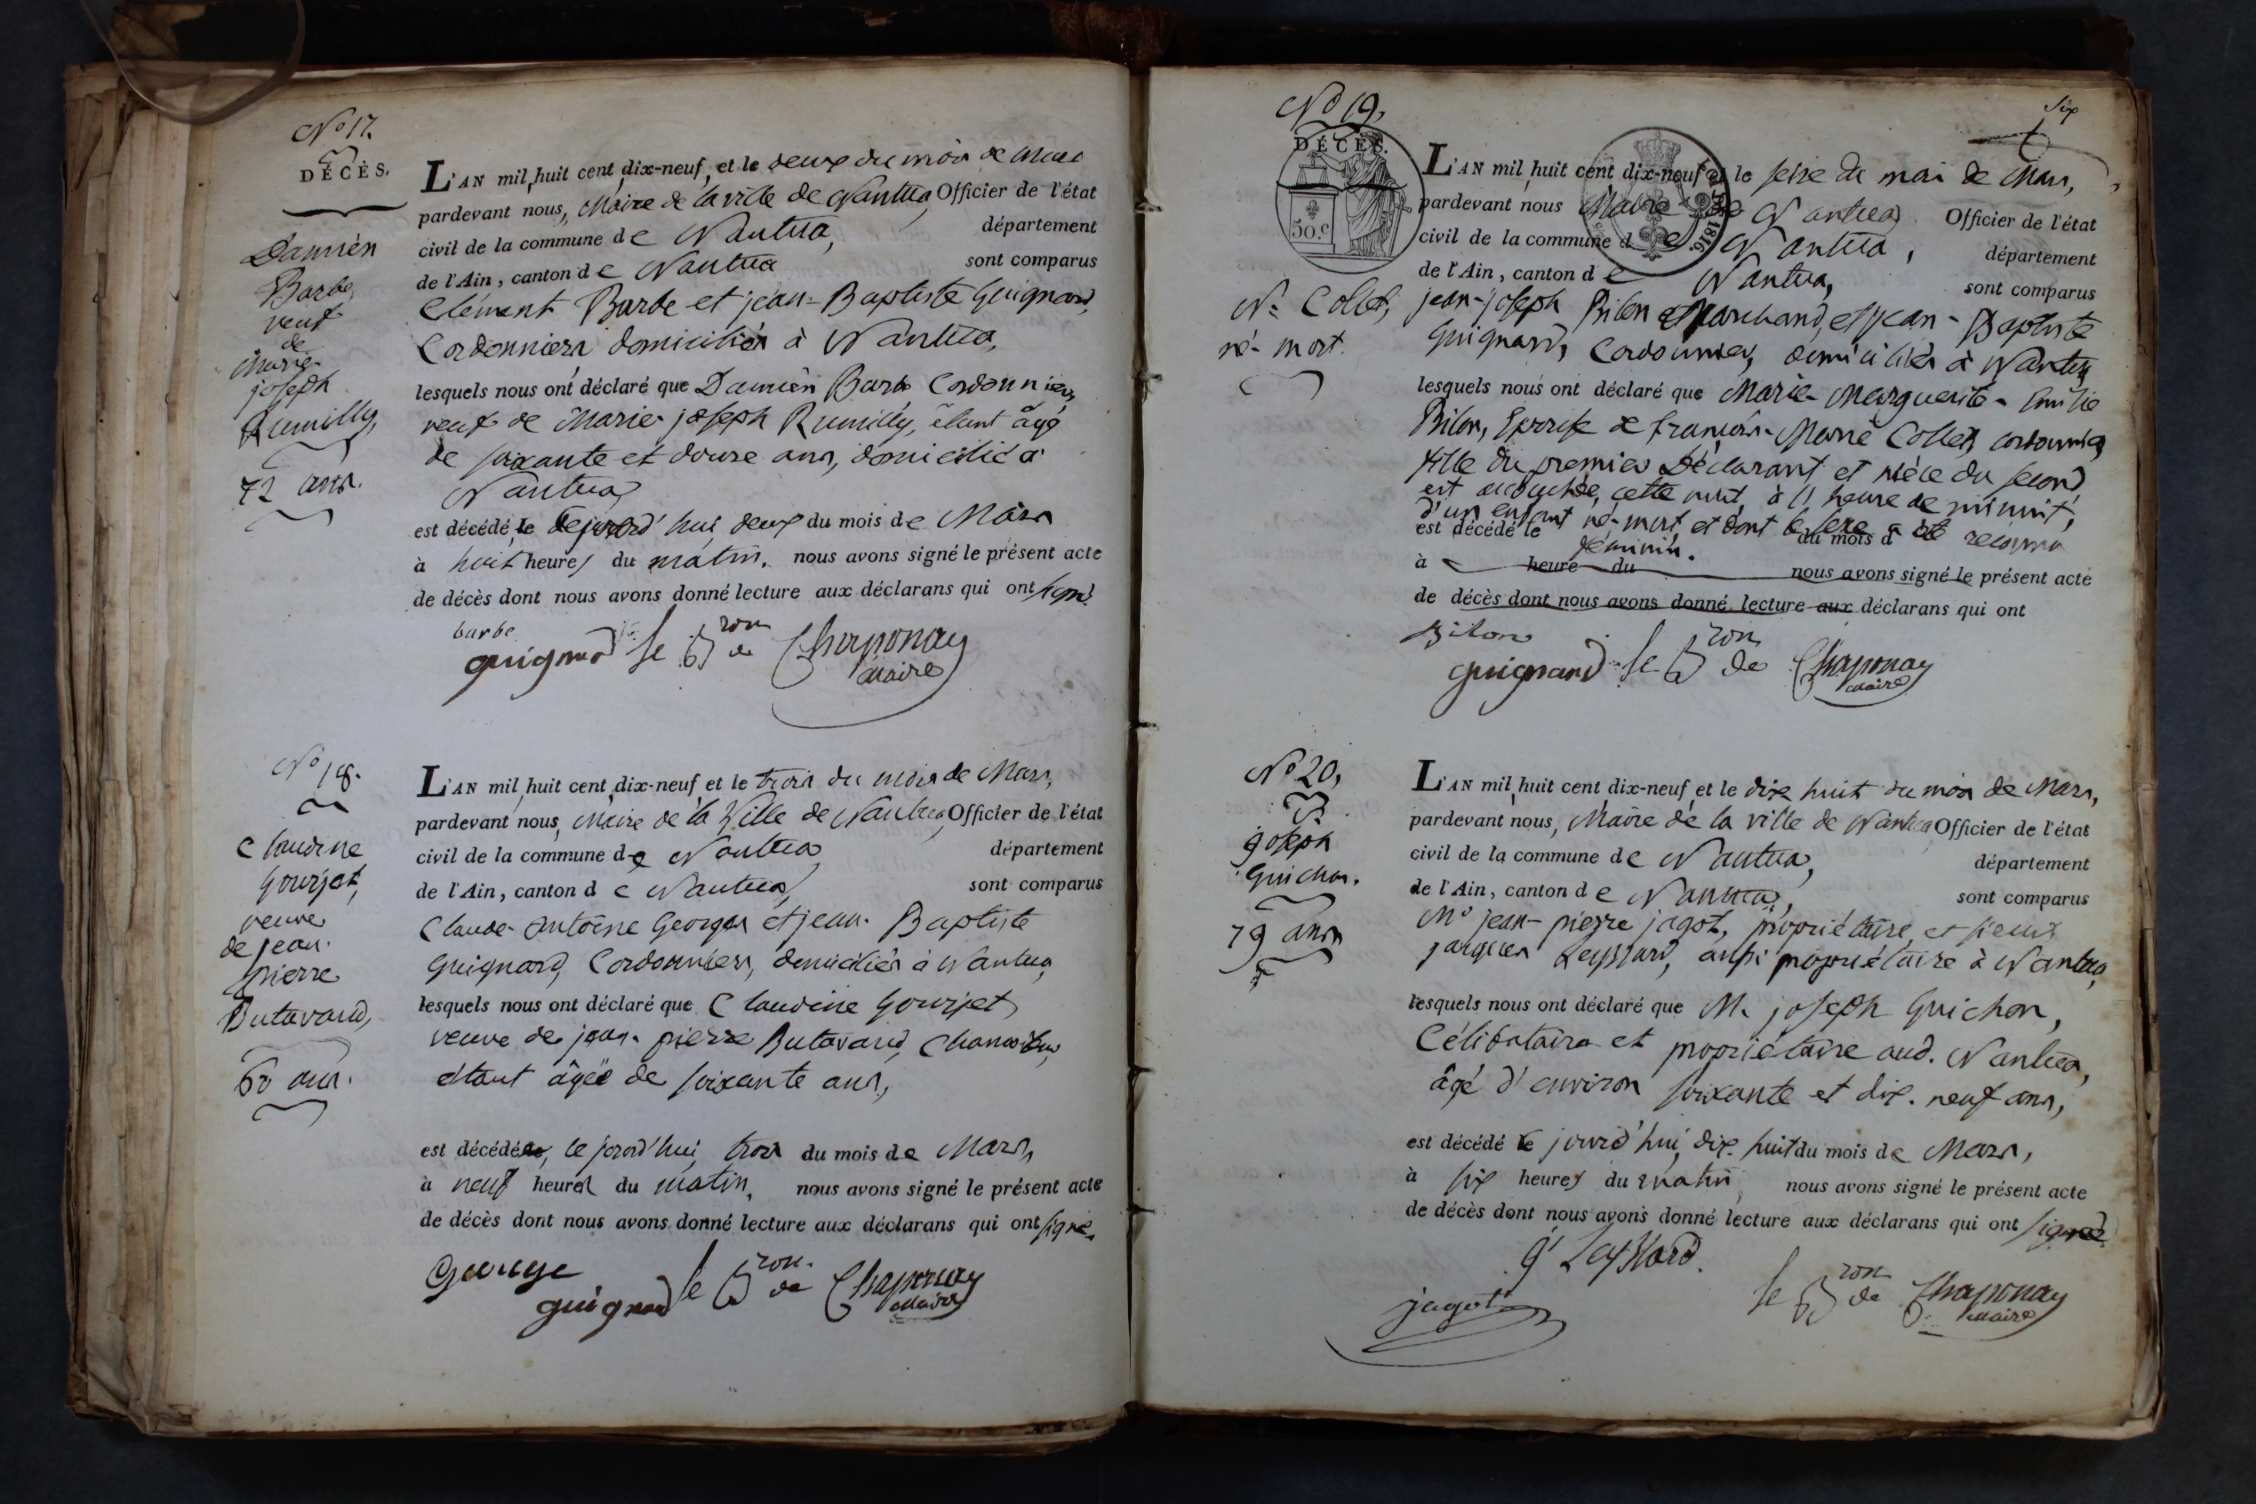 No 17.
DÉCÈS.
Damien
Barbe
veuf
de
Marie-
joseph
Rumilly,
72 ans.
L'AN mil huit cent dix-neuf, et le deux du mois de Mars
pardevant nous, Maire de la ville de Nantua, Officier de l'état
civil de la commune de Nantua, département
de l'Ain, canton de Nantua sont comparus
Clément Barbe et jean-Baptiste Guignard,
Cordonniers domiciliés à Nantua,
lesquels nous ont déclaré que Damien Barbe Cordonnier,
veuf de Marie-joseph Rumilly, étant âgé
de soixante et douze ans, domicilié à
Nantua,
est décédé, le cejourd'hui, deux du mois de Mars
à huit heures du matin. nous avons signé le présent acte
de décès dont nous avons donné lecture aux déclarans qui ont signé.
barbe
guignard le Bron de Chaponay
Maire
No 18.
Claudine
Gourjet,
veuve
de jean-
pierre
Butavand,
60 ans.
L'AN mil huit cent dix-neuf, et le trois du mois de Mars,
pardevant nous, Maire de la Ville de Nantua, Officier de l'état
civil de la commune de Nantua, département
de l'Ain, canton de Nantua, sont comparus
Claude-Antoine Georges et jean-Baptiste
Guignard, Cordonniers, domiciliés à Nantua,
lesquels nous ont déclaré que Claudine Gourjet
veuve de jean-pierre Butavand,
étant âgée de soixante ans,
est décédée, cejourd'hui, trois du mois de Mars,
à neuf heures du matin, nous avons signé le présent acte
de décès dont nous avons donné lecture aux déclarans qui ont signé.
George
guignard le Bron de Chaponay
Maire
Six
No 19.
DÉCÈS.
50.c
1816.
N= Collet,
né-mort.
L'AN mil huit cent dix-neuf et le seize du mois de Mars,
pardevant nous Maire de Nantua Officier de l'état
civil de la commune de Nantua, département
de l'Ain, canton de Nantua, sont comparus
jean-joseph Pilon Marchand, et jean-Baptiste
Guignard, Cordonnier, domiciliés à Nantua
lesquels nous ont déclaré que Marie-Marguerite-Emilie
Pilon, Epouse de françois-Marie Collet, cordonnier,
fille du premier Déclarant, et nièce du second
est accouchée, cette nuit, à l'heure de minuit,
d'un enfant né-mort, et dont le sexe a été reconnu
est décédé le du mois d
féminin.
à heure du nous avons signé le présent acte
de décès dont nous avons donné lecture aux déclarans qui ont
Pilon
guignard le Bron de Chaponay
Maire
No 20.
joseph
Guichon.
79 ans
L'AN mil huit cent dix-neuf, et le dix huit du mois de Mars,
pardevant nous, Maire de la ville de Nantua Officier de l'état
civil de la commune de Nantua, département
de l'Ain, canton de Nantua, sont comparus
Mr jean-pierre jagot, propriétaire, et sieur
jacques Leyssard, aussi propriétaire à Nantua,
lesquels nous ont déclaré que M. joseph Guichon,
Célibataire et propriétaire aud. Nantua,
âgé d'environ soixante et dix-neuf ans,
est décédé ce jourd'hui, dix-huit du mois de Mars,
à six heures du matin, nous avons signé le présent acte
de décès dont nous avons donné lecture aux déclarans qui ont signé
Leyssard.
jagot le Bron de Chaponay
Maire